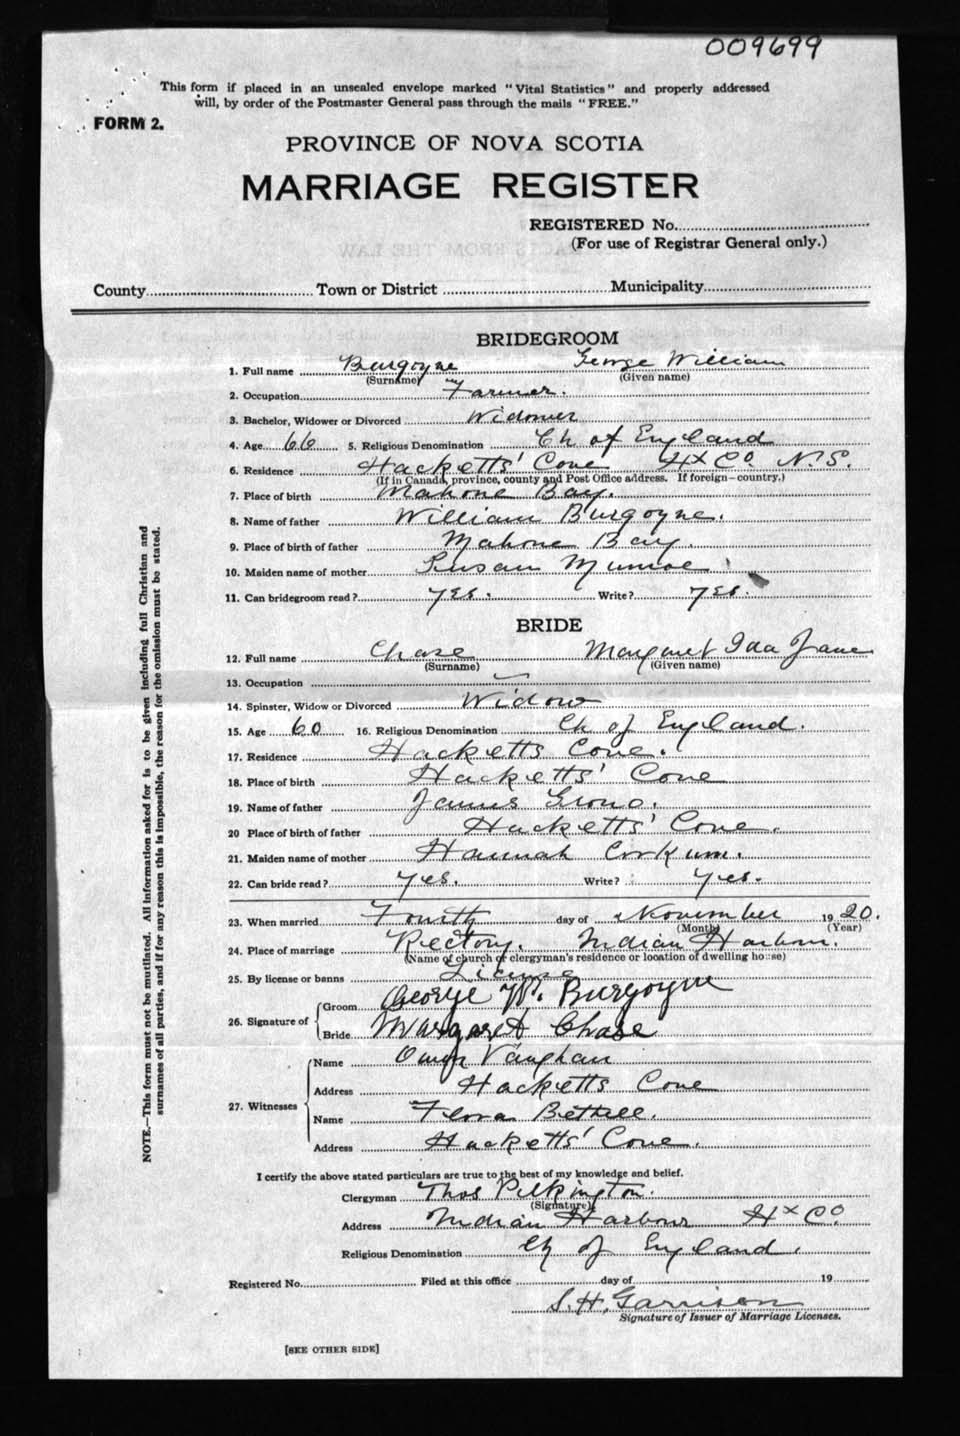 009699
This form if placed in an unsealed envelope marked "Vital Statistics" and properly addressed
will, by order of the Postmaster General pass through the mails "FREE."
FORM 2.
PROVINCE OF NOVA SCOTIA
MARRIAGE REGISTER
REGISTERED No.
(For use of Registrar General only.)
County Town or District Municipality
BRIDEGROOM
1. Full name Burgoyne George William
(Surname) (Given name)
2. Occupation Farmer.
3. Bachelor, Widower or Divorced Widower
4. Age 66 5. Religious Denomination Ch of England
6. Residence Hacketts' Cove Hx Co. N.S.
(If in Canada, province, county and Post Office address. If foreign—country.)
7. Place of birth Mahone Bay.
8. Name of father William Burgoyne.
9. Place of birth of father Mahone Bay.
10. Maiden name of mother Susan Munroe
11. Can bridegroom read? yes. Write? yes.
BRIDE
12. Full name Chase Margaret Ida Jane
(Surname) (Given name)
13. Occupation
14. Spinster, Widow or Divorced Widow
15. Age 60 16. Religious Denomination Ch of England.
17. Residence Hacketts Cove.
18. Place of birth Hacketts' Cove
19. Name of father James Grono.
20 Place of birth of father Hacketts' Cove.
21. Maiden name of mother Hannah Corkum.
22. Can bride read? yes. Write? yes.
23. When married Fourth day of November 1920.
(Month) (Year)
24. Place of marriage Rectory. Indian Harbour.
(Name of church or clergyman's residence or location of dwelling house)
25. By license or banns License
26. Signature of Groom George W. Burgoyne
Bride Margaret Chase
27. Witnesses Name Owen Vaughan
Address Hacketts Cove
Name Flora Bethell.
Address Hacketts' Cove.
I certify the above stated particulars are true to the best of my knowledge and belief.
Clergyman Thos Pilkington.
(Signature)
Address Indian Harbour Hx Co
Religious Denomination Ch of England.
Registered No. Filed at this office day of 19
S. H. Garrison
Signature of Issuer of Marriage Licenses.
[SEE OTHER SIDE]
NOTE.—This form must not be mutilated. All information asked for is to be given including full Christian and
surnames of all parties, and if for any reason this is impossible, the reason for the omission must be stated.